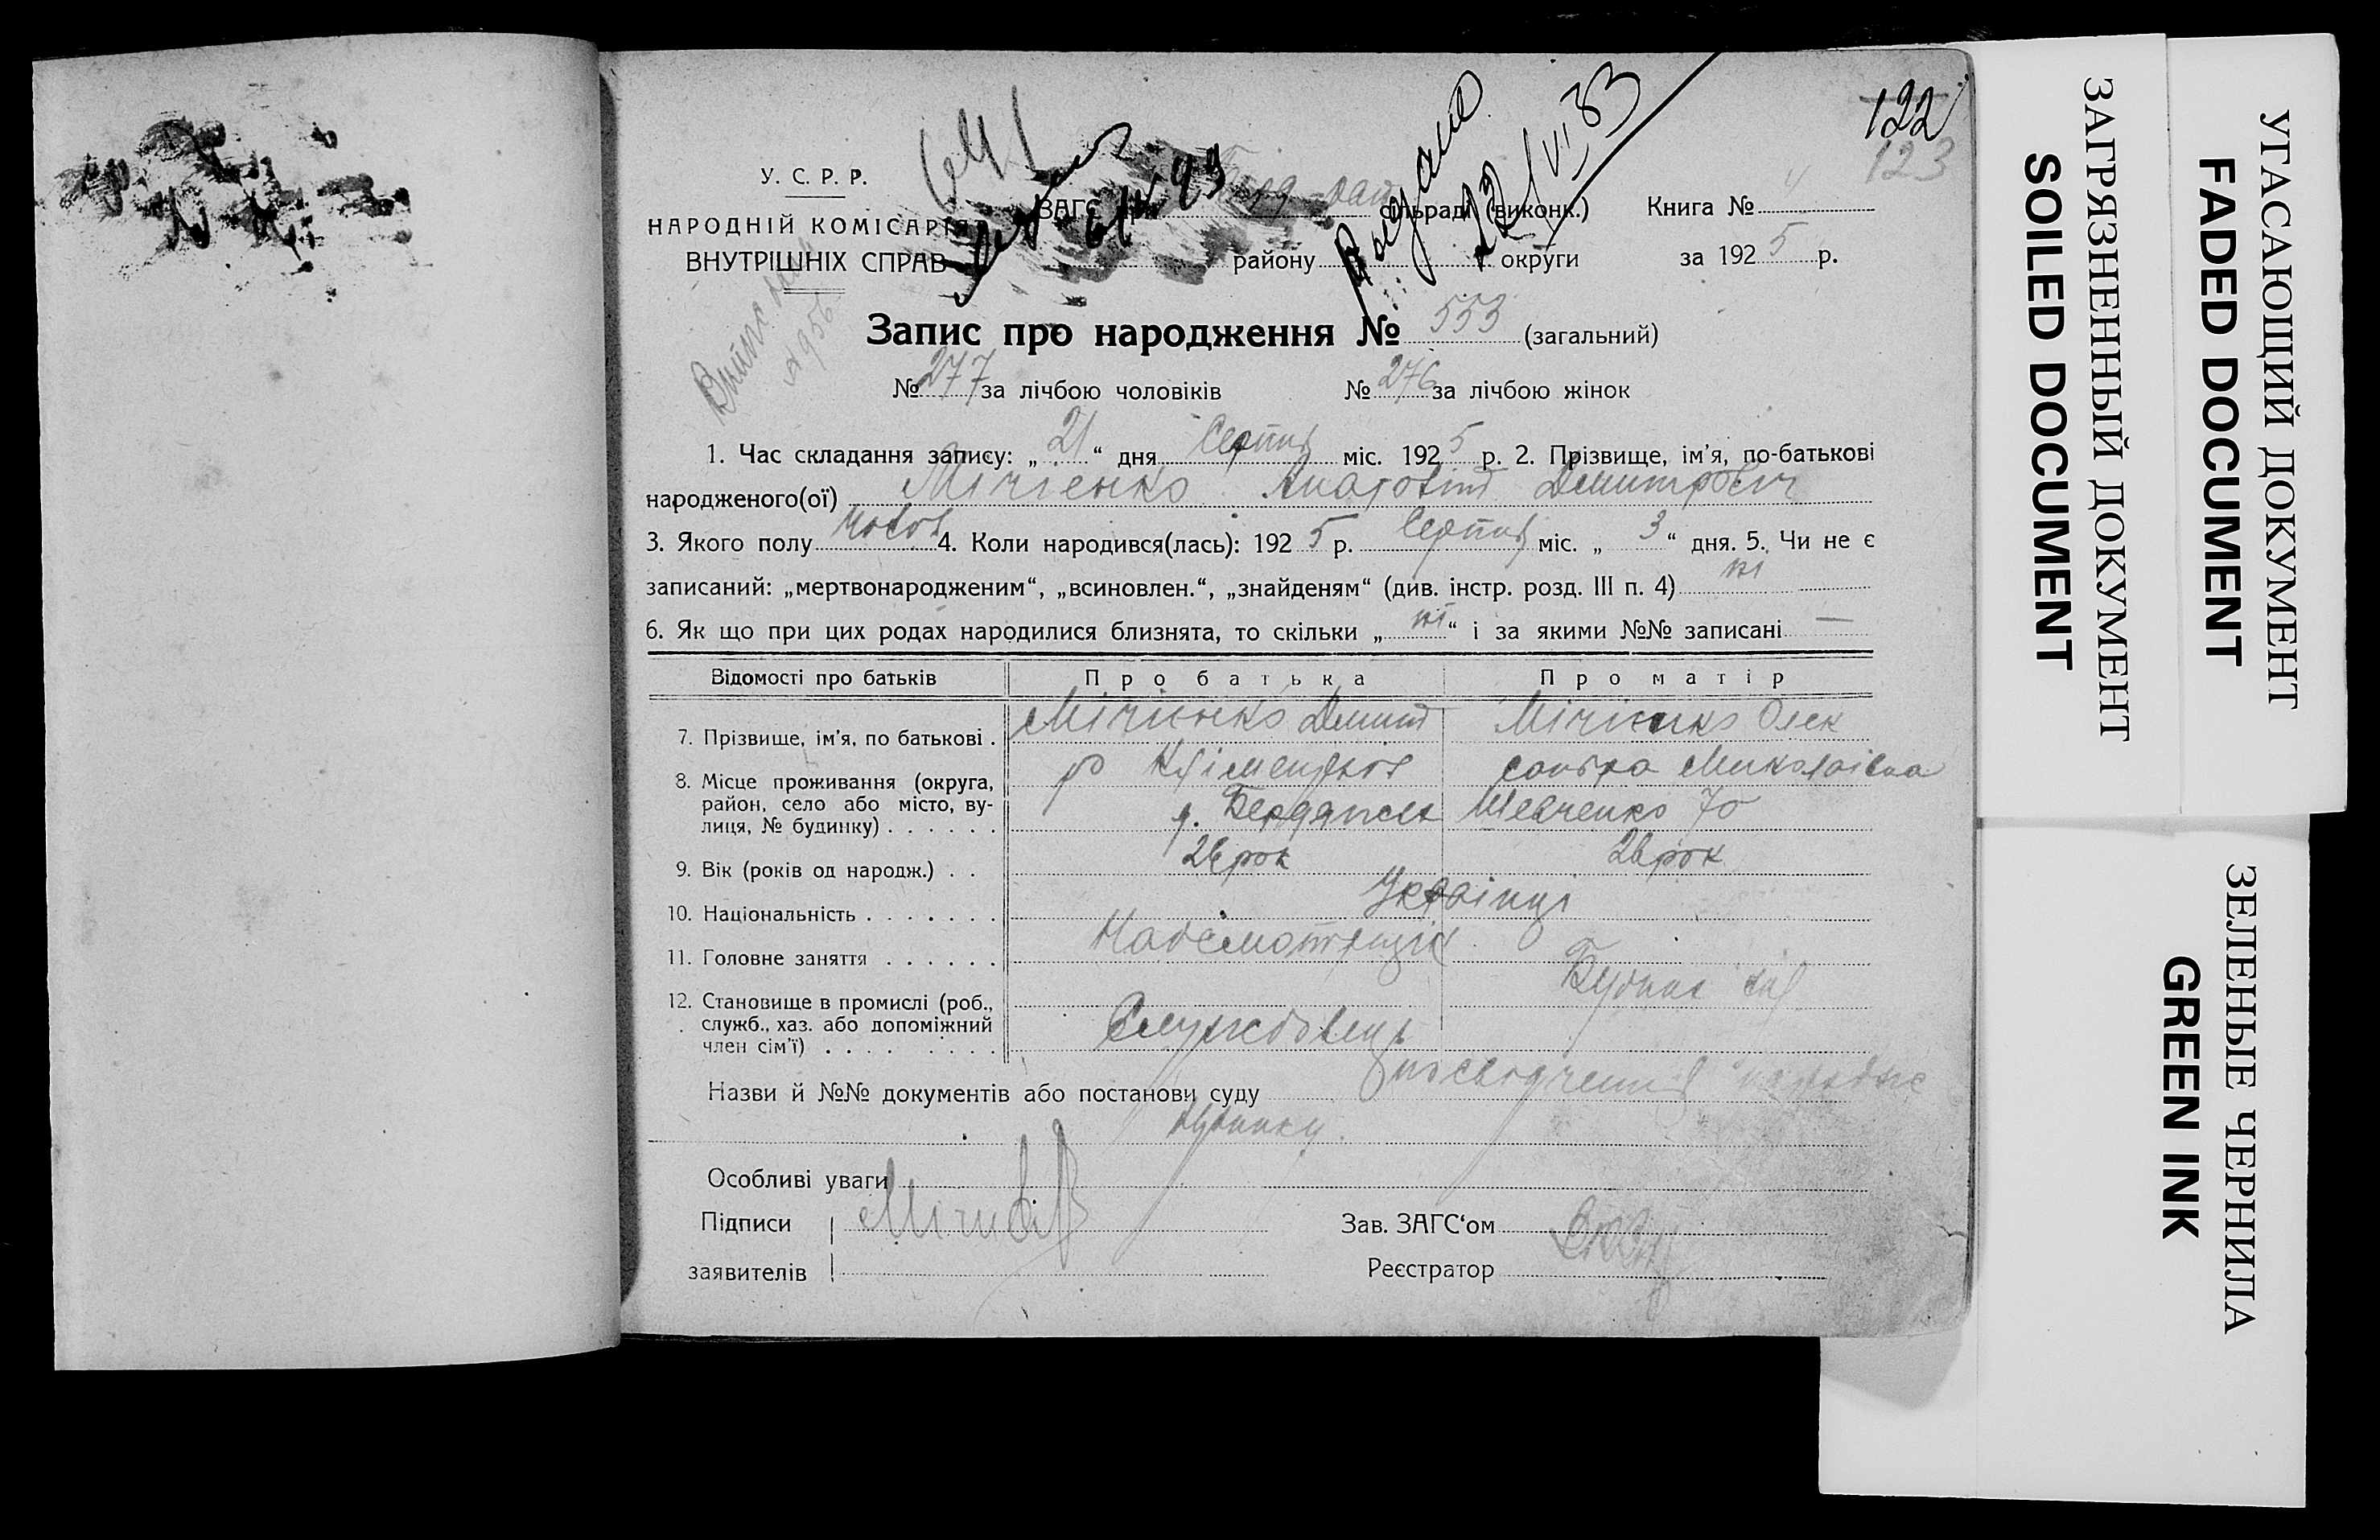 122
123
641
Выдано
12/VI 33
У. С. Р. Р.
НАРОДНІЙ КОМІСАРІЯТ
ВНУТРІШНІХ СПРАВ
ЗАГС сільради (виконк.)
району округи
Книга №
за 1925 р.
Запис про народження № 553 (загальний)
№ 277 за лічбою чоловіків № 276 за лічбою жінок
1. Час складання запису: „21“ дня Серпня міс. 1925 р. 2. Прізвище, ім'я, по-батькові
народженого(ої) Мічієнко Анатолій Дмитрович
3. Якого полу чолов 4. Коли народився(лась): 1925 р. Серпня міс. „3“ дня. 5. Чи не є
записаний: „мертвонародженим“, „всиновлен.“, „знайденям“ (див. інстр. розд. III п. 4) ні
6. Як що при цих родах народилися близнята, то скільки „ні“ і за якими №№ записані —
Відомості про батьків Про батька Про матір
7. Прізвище, ім'я, по батькові . Мічієнко Дмит Мічієнко Олек
8. Місце проживання (округа, сандра Миколаївна
район, село або місто, ву- Шевченко 70
лиця, № будинку) . . . . . .
9. Вік (років од народж.) . . 26 рок 26 рок
10. Національність . . . . . . . Українці
11. Головне заняття . . . . . .
12. Становище в промислі (роб.,
служб., хаз. або допоміжний Службовець
член сім'ї) . . . . . . . .
Назви й №№ документів або постанови суду посвідчення
Особливі уваги
Підписи
заявителів
Зав. ЗАГС'ом
Реєстратор
УГАСАЮЩИЙ ДОКУМЕНТ
FADED DOCUMENT
ЗАГРЯЗНЕННЫЙ ДОКУМЕНТ
SOILED DOCUMENT
ЗЕЛЕНЫЕ ЧЕРНИЛА
GREEN INK